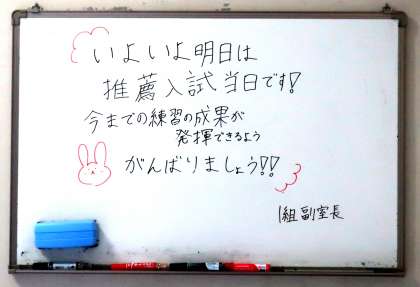 いよいよ明日は
推薦入試当日です!
今までの練習の成果が
発揮できるよう
がんばりましょう!!
1組 副室長